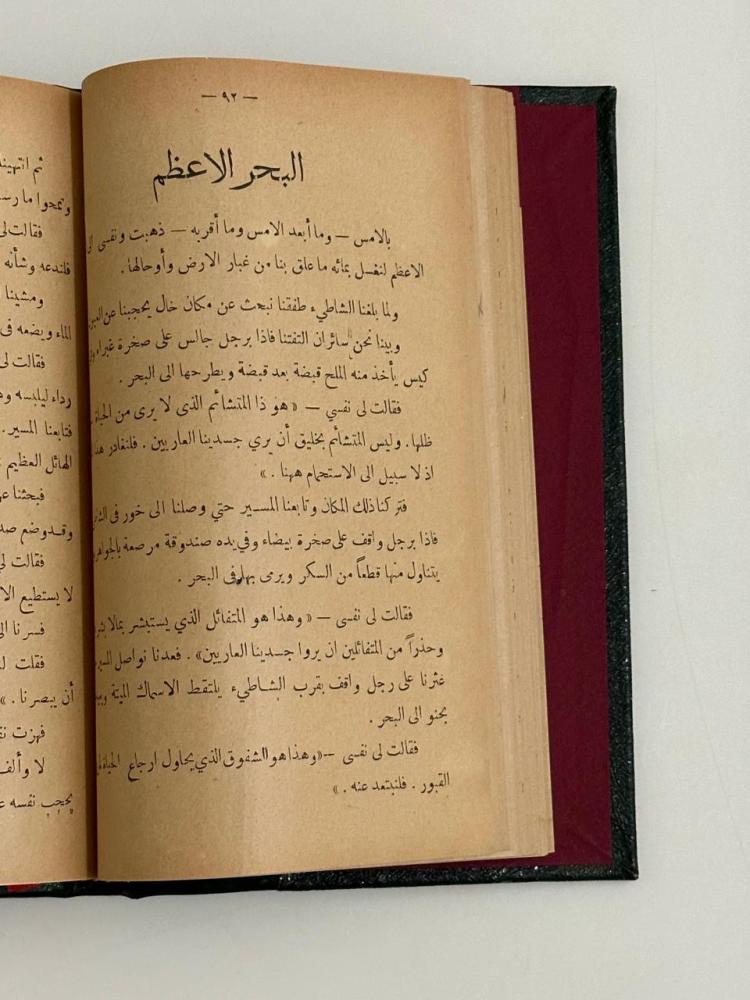 — ٩٢ —
البحر الاعظم
بالامس — وما أبعد الامس وما أقربه — ذهبت ونفسى
الاعظم لنغسل بمائه ما علق بنا من غبار الارض وأوحالها .
ولما بلغنا الشاطيء طفقنا نبحث عن مكان خال يحجبنا عن
وبينا نحن سائران التفتنا فاذا برجل جالس على صخرة غبراء
كيس يأخذ منه الملح قبضة بعد قبضة ويطرحها الى البحر .
فقالت لى نفسي — « هو ذا المتشائم الذى لا يرى من الحياة
ظلها . وليس المتشائم بخليق أن يري جسدينا العاريين . فلنغادر
اذ لا سبيل الى الاستحمام ههنا . »
فتركنا ذلك المكان وتابعنا المسير حتي وصلنا الى خور فى
فاذا برجل واقف على صخرة بيضاء وفي يده صندوقة مرصعة بالجواهر
يتناول منها قطعاً من السكر ويرمى بها فى البحر .
فقالت لى نفسى — « وهذا هو المتفائل الذي يستبشر بمالا
وحذراً من المتفائلين ان يروا جسدينا العاريين » . فعدنا نواصل
عثرنا على رجل واقف بقرب الشاطيء يلتقط الاسماك الميتة
بحنو الى البحر .
فقالت لى نفسى — « وهذا هو الشفوق الذي يحاول ارجاع الحياة
القبور . فلنبتعد عنه . »
ثم انتهينا
وتمحوا ما
فقالت لى
فلندعه وشأنه
ومشينا
الماء ويضعه فى
فقالت لى
رداء ليلبسه
فتابعنا المسير .
الهائل العظيم
فبحثنا
وقدوضع
فقالت
لا يستطيع
فسرنا
فقلت
أن يبصرنا . »
فهزت
لا
يحجب نفسه